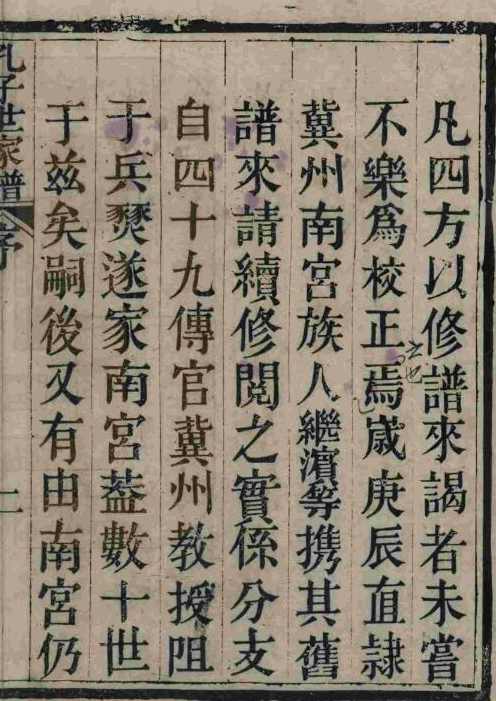 凡四方以修譜來謁者未嘗
不樂爲校正焉嵗庚辰直隷
冀州南宮族人繼濵等携其舊
譜來請續修閱之實係分支
自四十九傳官冀州教授阻
于兵燹遂家南宮葢數十世
于兹矣嗣後又有由南宮仍
孔子世家譜 序
二